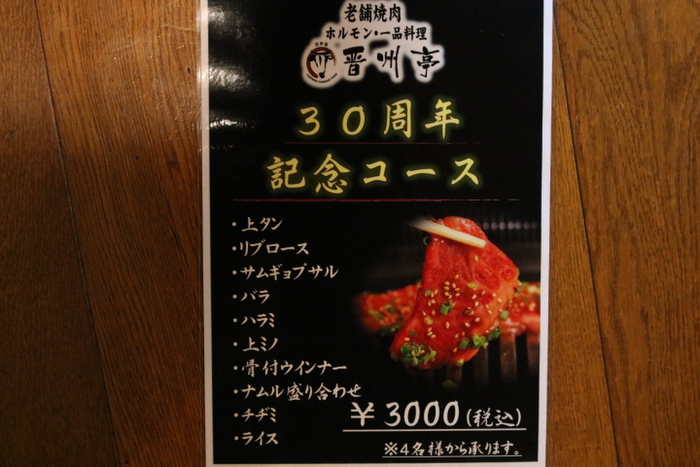 老舗焼肉
ホルモン・一品料理
晋州亭
30周年
記念コース
・上タン
・リブロース
・サムギョプサル
・バラ
・ハラミ
・上ミノ
・骨付ウインナー
・ナムル盛り合わせ
・チヂミ
・ライス
￥3000(税込)
※4名様から承ります。